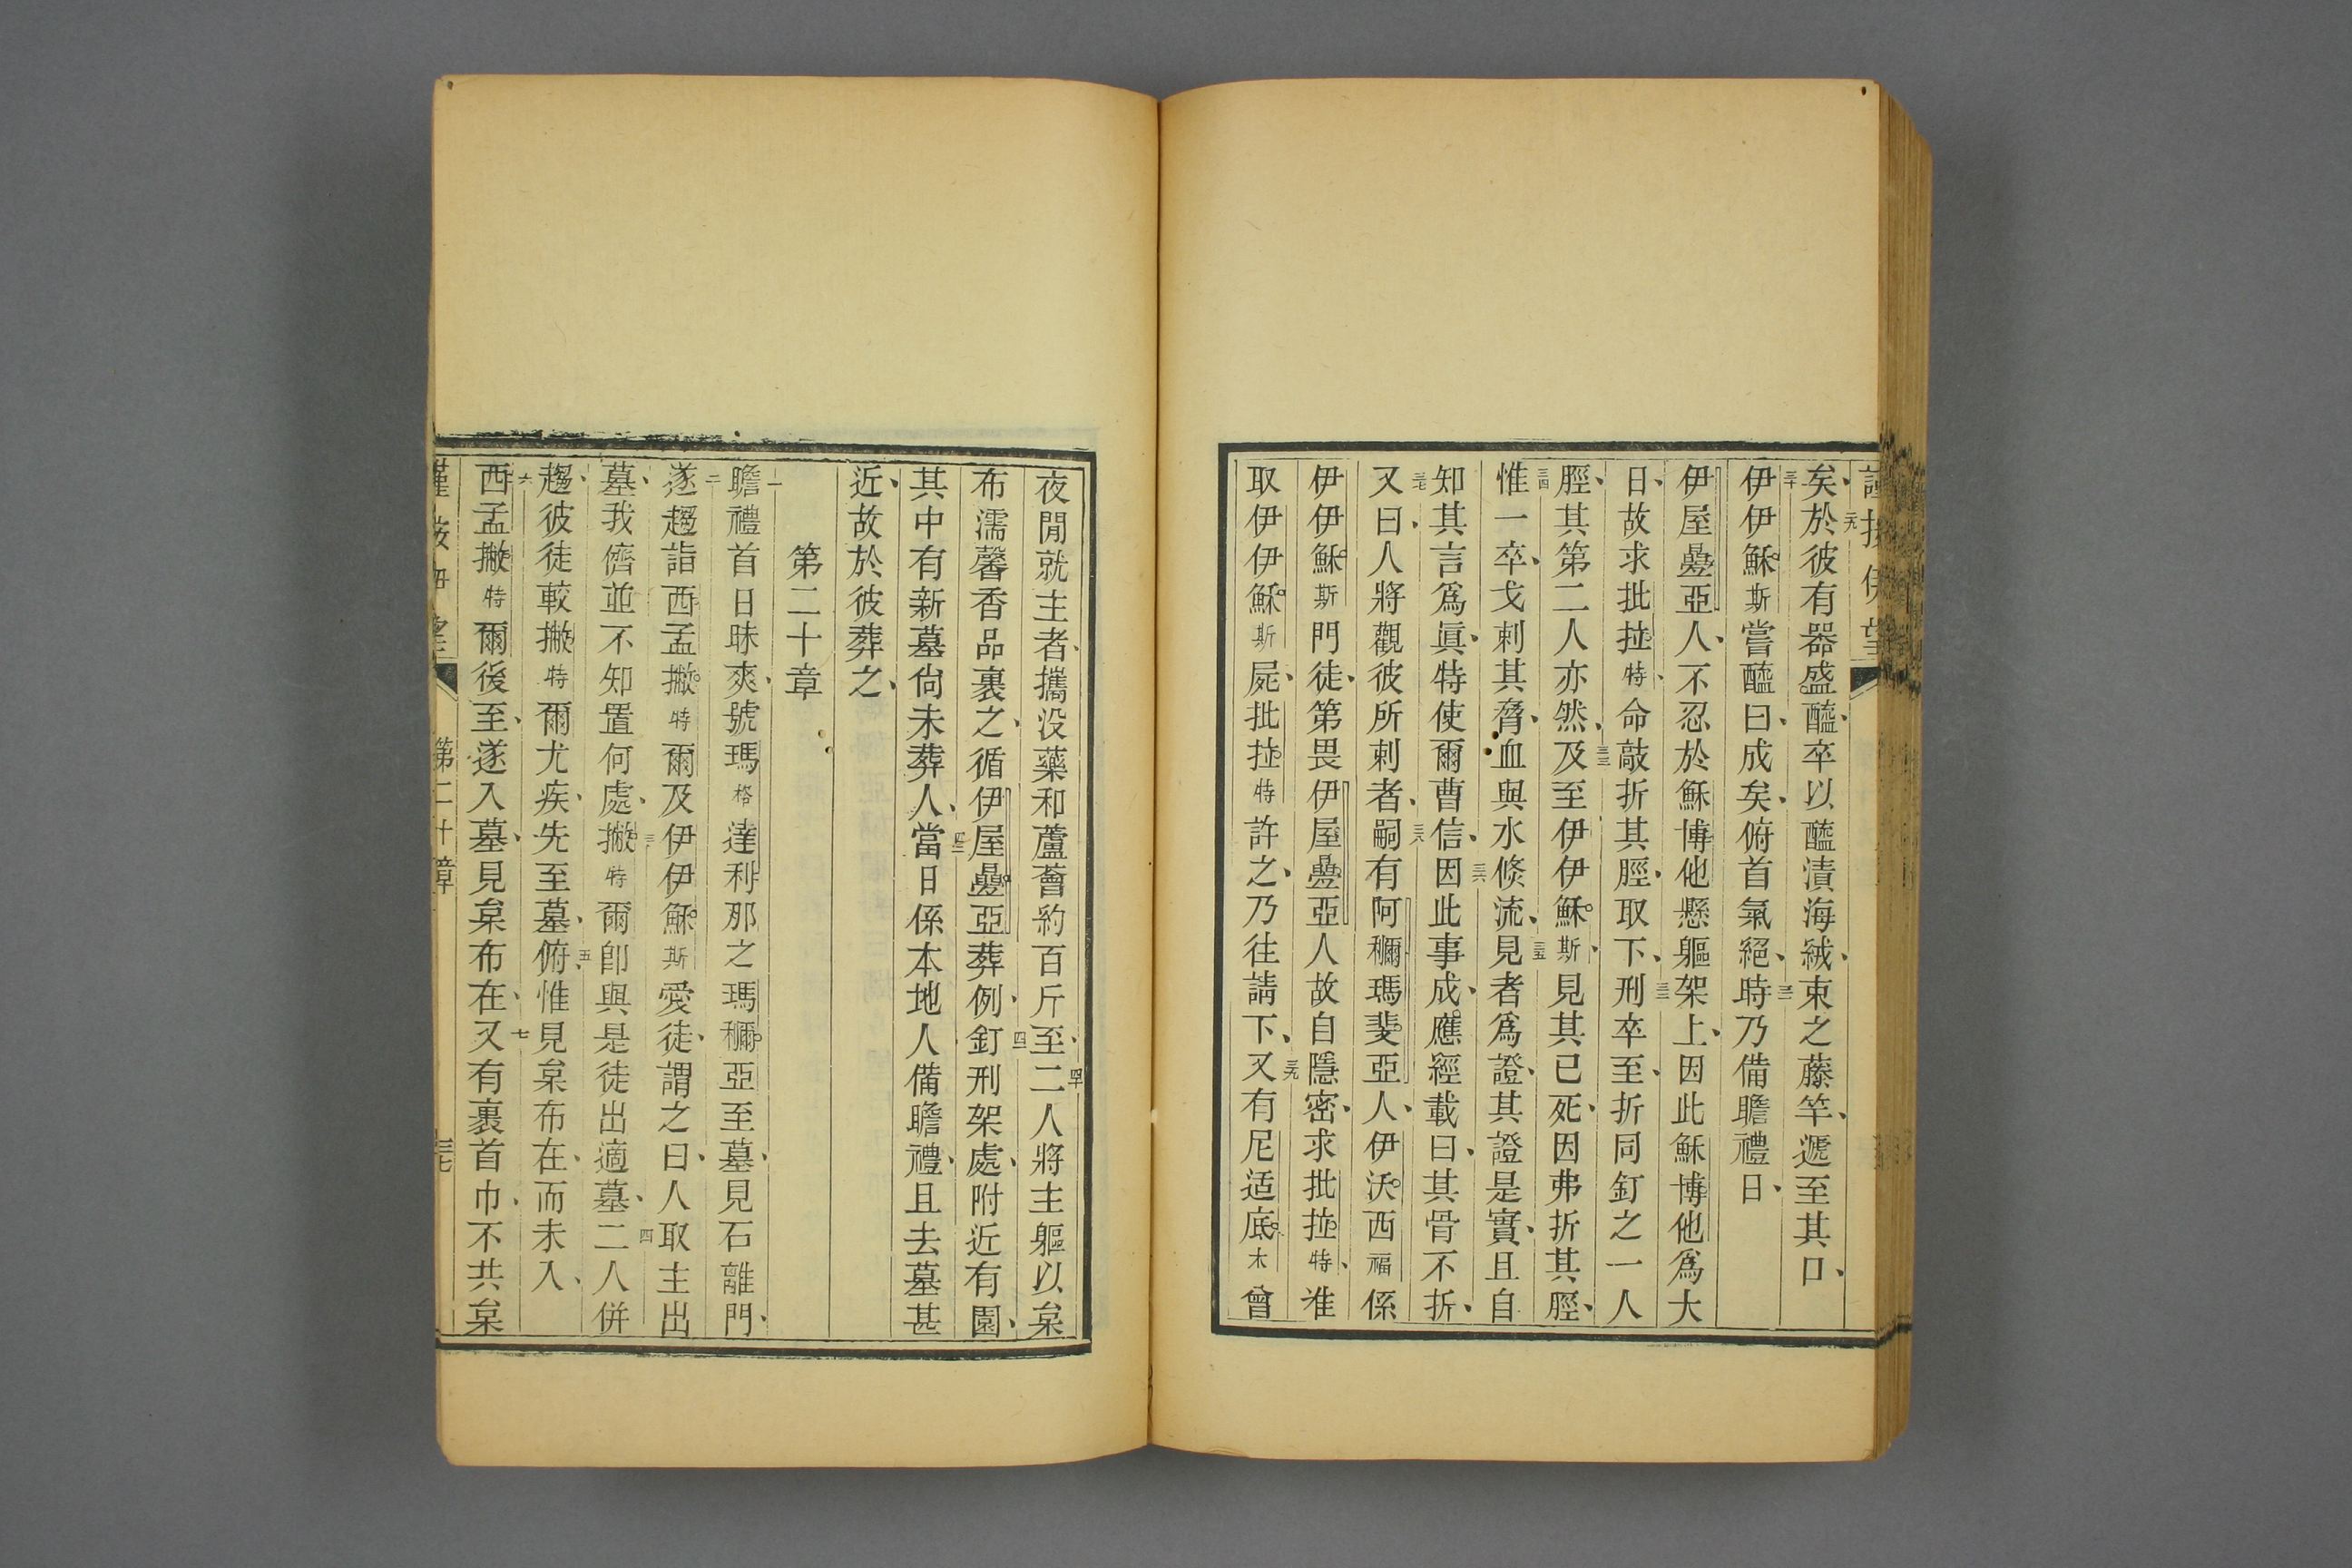 矣於彼有器盛醯卒以醯漬海絨束之藤竿遞至其口
伊伊穌斯嘗醯曰成矣俯首氣絕時乃備瞻禮日
伊屋疊亞人不忍於穌博他懸軀架上因此穌博他爲大
日故求批拉特命敲折其脛取下刑卒至折同釘之一人
脛其第二人亦然及至伊伊穌斯見其已死因弗折其脛
惟一卒戈刺其脅血與水倐流見者爲證其證是實且自
知其言爲眞特使爾曹信因此事成應經載曰其骨不折
又曰人將觀彼所刺者嗣有阿穪瑪斐亞人伊沃西福係
伊伊穌斯門徒第畏伊屋疊亞人故自隱密求批拉特准
取伊伊穌斯屍批拉特許之乃往請下又有尼适底木曾
夜間就主者攜没藥和蘆薈約百斤至二人將主軀以枲
布濡馨香品裹之循伊屋疊亞葬例釘刑架處附近有園
其中有新墓尙未葬人當日係本地人備瞻禮且去墓甚
近故於彼葬之
第二十章
瞻禮首日昧爽號瑪格達利那之瑪穪亞至墓見石離門
遂趨詣西孟撇特爾及伊伊穌斯愛徒謂之曰人取主出
墓我儕並不知置何處撇特爾卽與是徒出適墓二人併
趨彼徒較撇特爾尤疾先至墓俯惟見枲布在而未入
西孟撇特爾後至遂入墓見枲布在又有裹首巾不共枲
第二十章